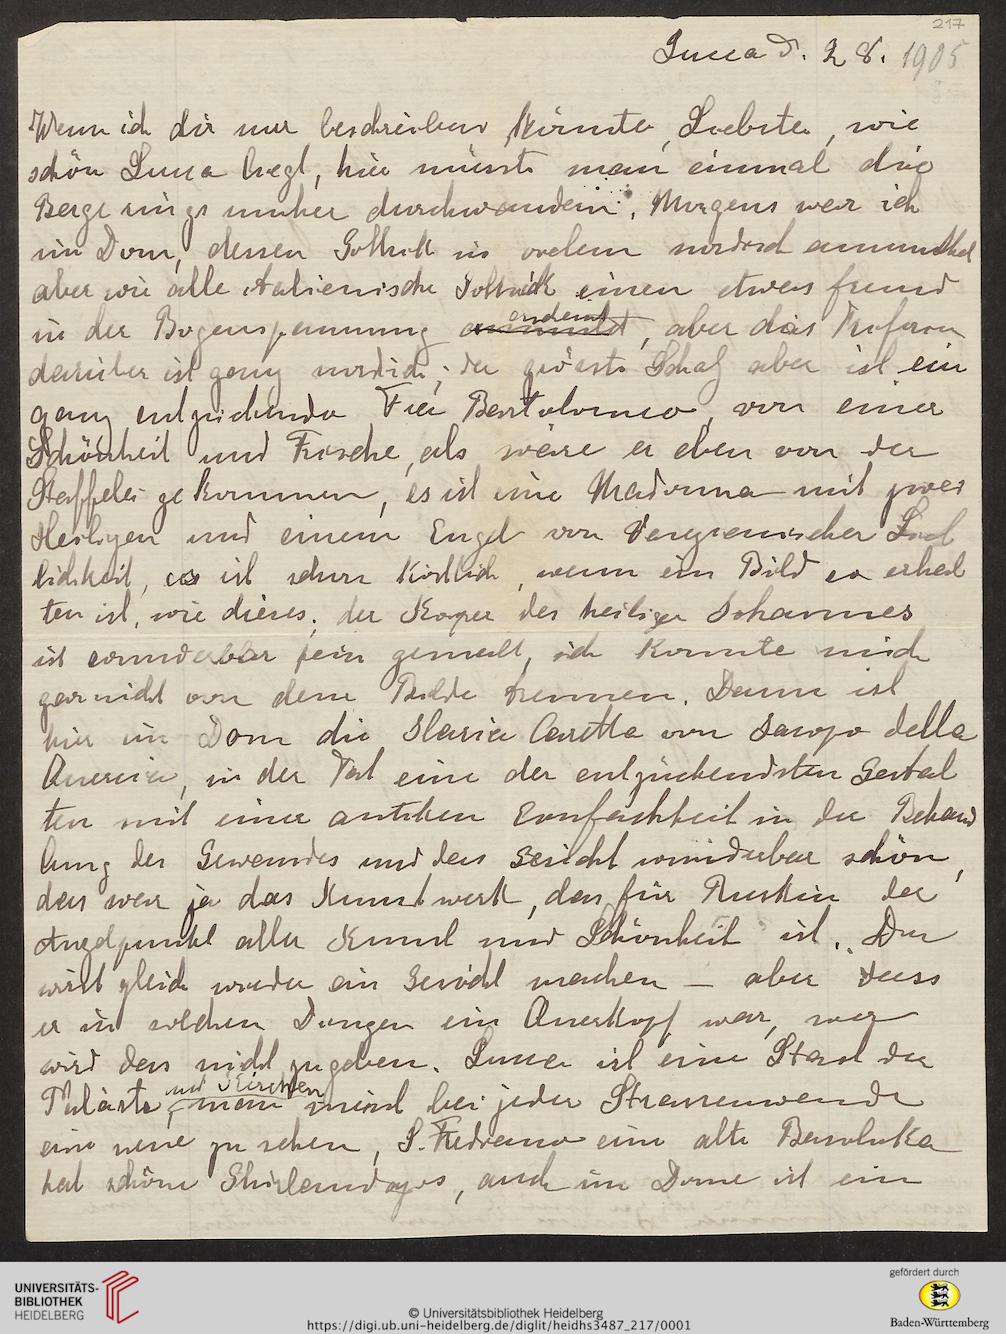 217
Lucca d. 28. 1905
Wenn ich dir nur beschreiben könnte, Liebste, wie
schön Lucca liegt, hier müsste man einmal die
Berge rings umher durchwandern. Morgens war ich
im Dom, dessen Gothik in vielem nordisch anmuthet
aber wie alle italienische Gothik einen etwas fremd
in der Bogenspannung anmuthet andeut, aber das Triforium
darüber ist ganz nordisch; der grösste Schatz aber ist ein
ganz entzückender Fra Bartolomeo, von einer
Schönheit und Frische, als wäre er eben von der
Staffelei gekommen, es ist eine Madonna mit zwei
Heiligen und einem Engel von Peruginischer Lieb
lichkeit, es ist schon köstlich, wenn ein Bild so erhal
ten ist, wie dieses, der Körper des heiligen Johannes
ist wunderbar fein gemalt, ich konnte mich
gar nicht von dem Bilde trennen. Dann ist
hier im Dom die Ilaria Caretta von Jacopo della
Quercia, in der Tat eine der entzückendsten Gestal
ten mit einer antiken Einfachheit in der Behand
lung des Gewandes und das Gesicht wunderbar schön,
das war ja das Kunstwerk, das für Ruskin der
Angelpunkt aller Kunst und Schönheit ist. Du
wirst gleich wieder ein Gesicht machen — aber dass
er in solchen Dingen ein Querkopf war, wer
wird das nicht zugeben. Lucca ist eine Stadt der
Paläste und Kirchen, man meint bei jeder Strassenwende
eine neue zu sehen, S. Frediano eine alte Basilika
hat schöne Ghirlandajos, auch im Dome ist ein
UNIVERSITÄTS-
BIBLIOTHEK
HEIDELBERG
© Universitätsbibliothek Heidelberg
https://digi.ub.uni-heidelberg.de/diglit/heidhs3487_217/0001
gefördert durch
Baden-Württemberg